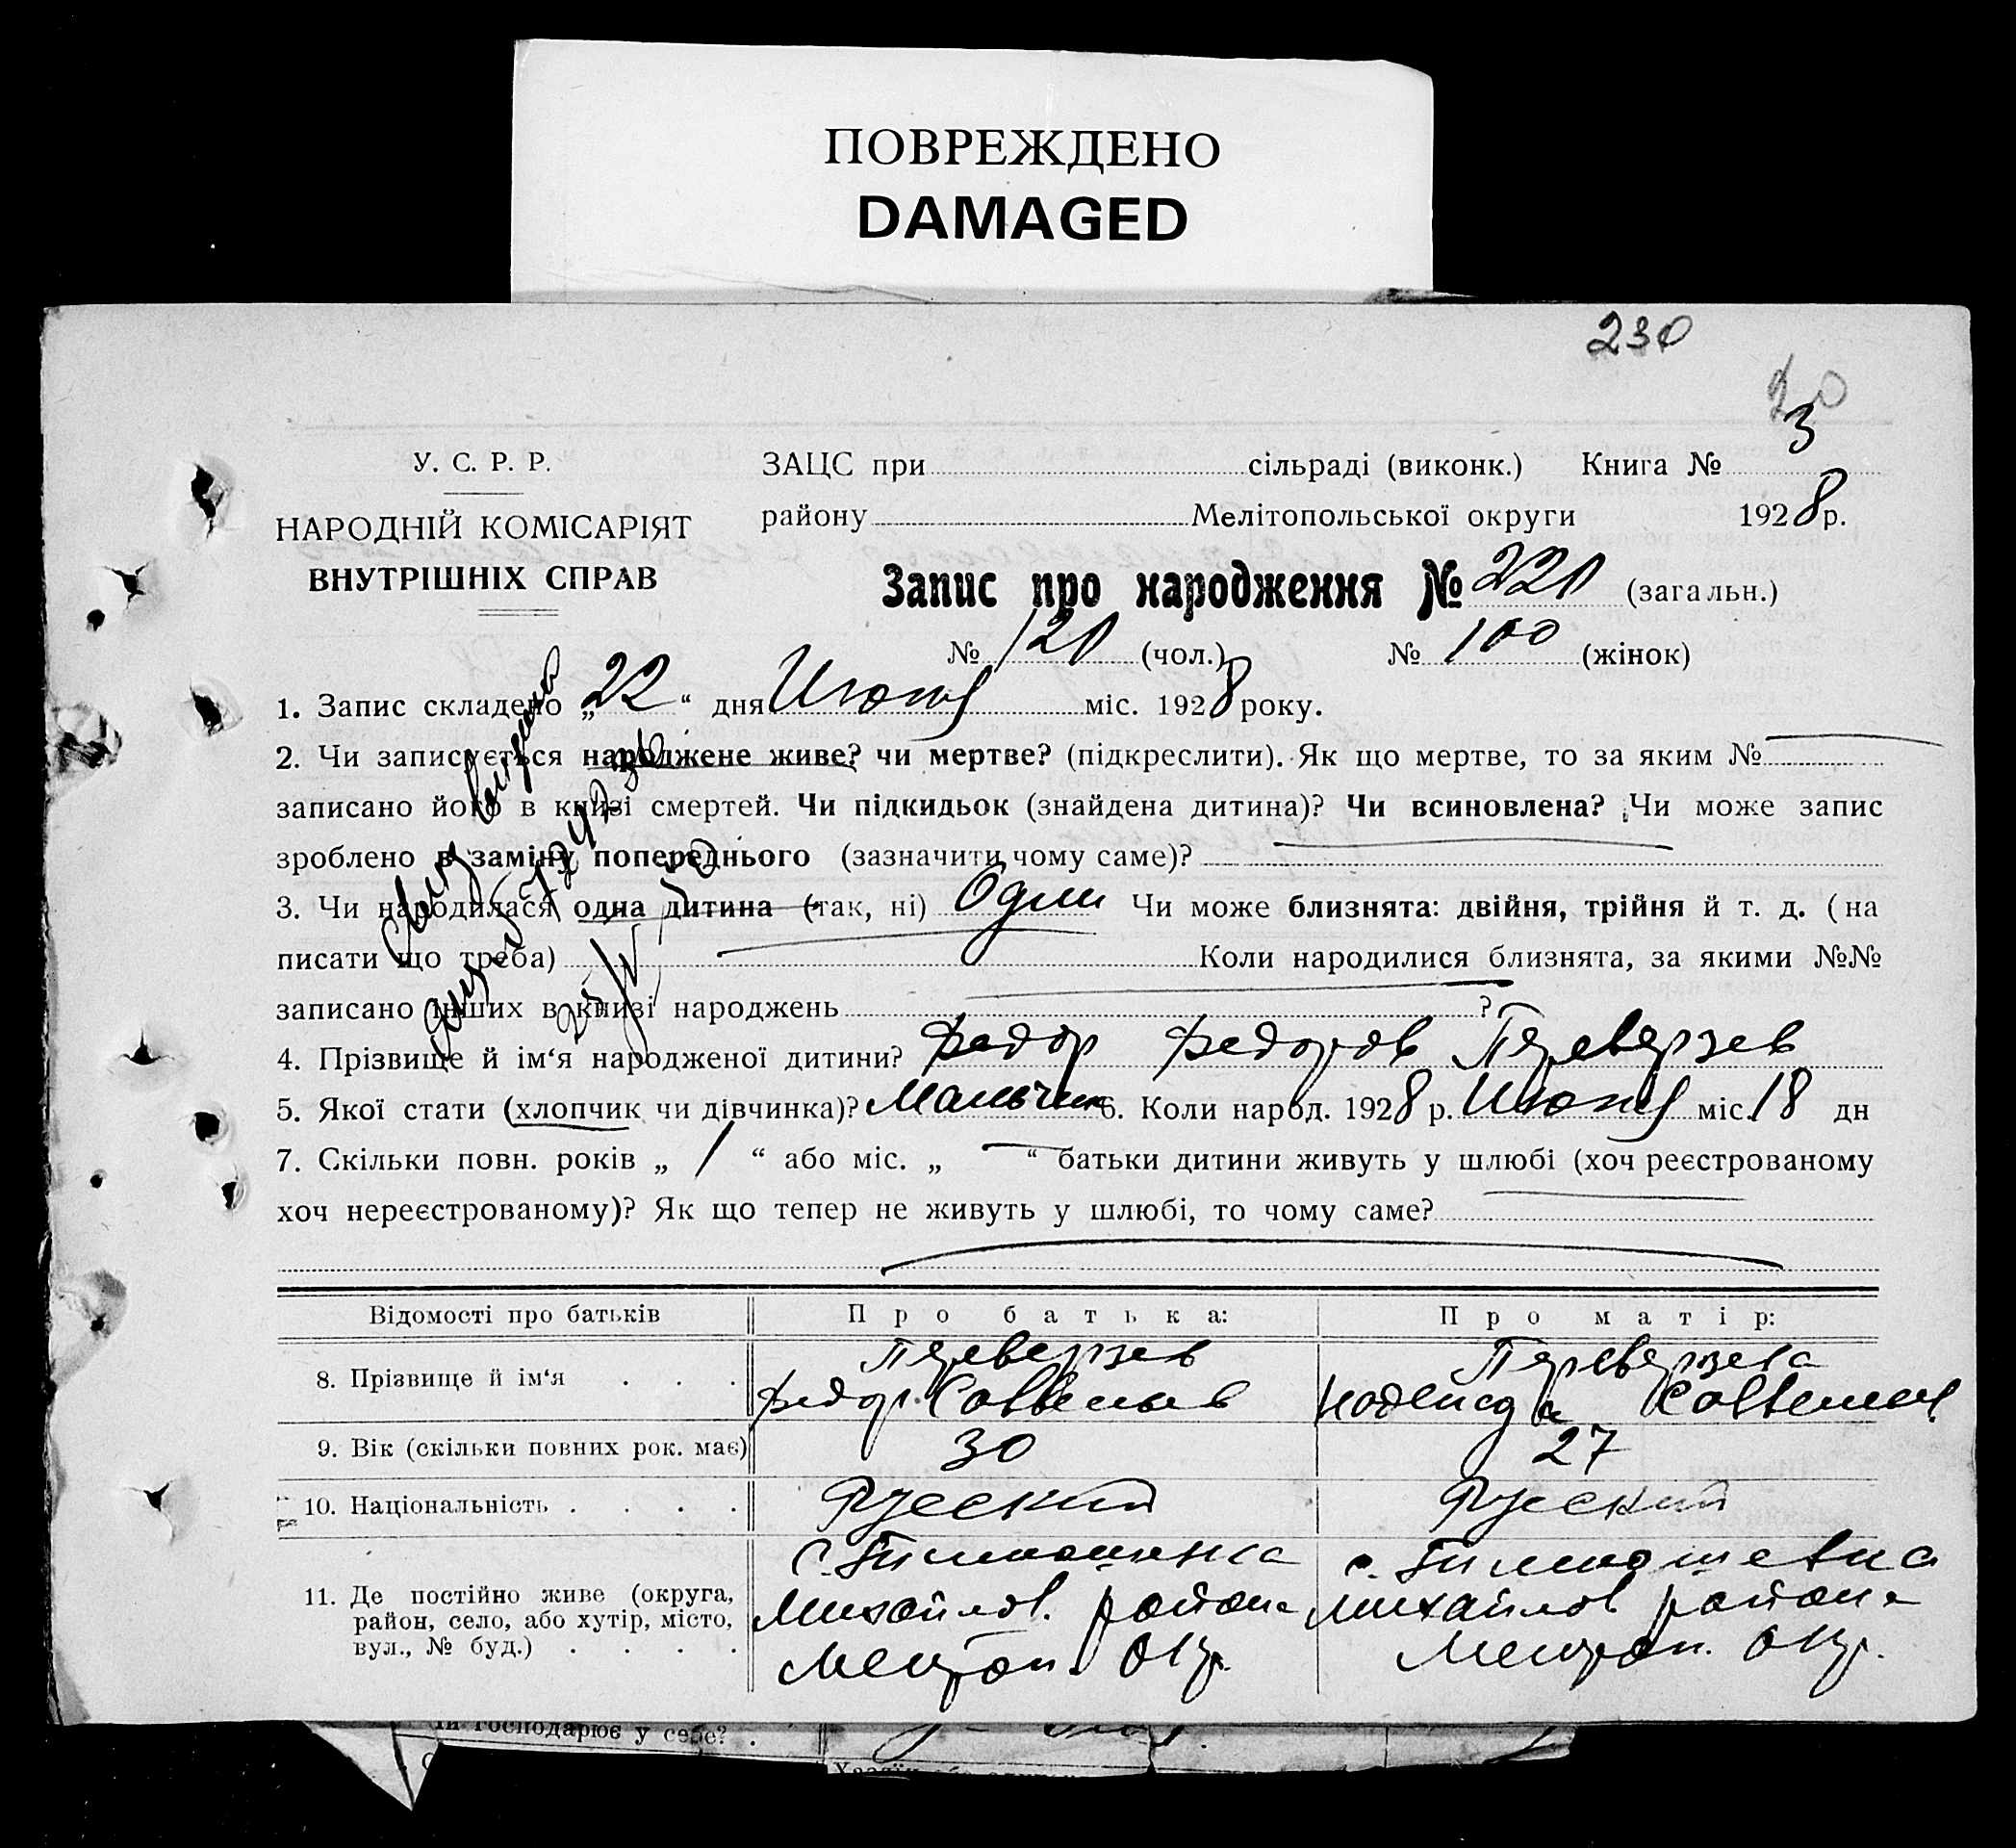 ПОВРЕЖДЕНО
DAMAGED
230
20
3
У. С. Р. Р.
НАРОДНІЙ КОМІСАРІЯТ
ВНУТРІШНІХ СПРАВ
ЗАЦС при сільраді (виконк.) Книга №
району Мелітопольської округи 1928 р.
Запис про народження № 220 (загальн.)
№ 120 (чол.) № 100 (жінок)
1. Запис складено „22“ дня Июня міс. 1928 року.
2. Чи записується народжене живе? чи мертве? (підкреслити). Як що мертве, то за яким №
записано його в книзі смертей. Чи підкидьок (знайдена дитина)? Чи всиновлена? Чи може запис
зроблено в заміну попереднього (зазначити чому саме)?
3. Чи народилася одна дитина (так, ні) Один Чи може близнята: двійня, трійня й т. д. (на
писати що треба) Коли народилися близнята, за якими №№
записано інших в книзі народжень ?
4. Прізвище й ім‘я народженої дитини? Федор Федоров Переверзев
5. Якої стати (хлопчик чи дівчинка)? Мальчик 6. Коли народ. 1928 р. Июня міс. 18 дн
7. Скільки повн. років „ 1 “ або міс. „ — “ батьки дитини живуть у шлюбі (хоч реєстрованому
хоч нереєстрованому)? Як що тепер не живуть у шлюбі, то чому саме?
Відомості про батьків Про батька: Про матір:
8. Прізвище й ім‘я . . . Переверзев Переверзева
Федор Савельев Надежда Савельев
9. Вік (скільки повних рок. має) 30 27
10. Національність . . . . Русский Русский
11. Де постійно живе (округа, район, село, або хутір, місто, вул., № буд.) . . . .
с. Тимошевка с. Тимошевка
Михайлов. района Михайлов района
Мелитоп. Окр. Мелитоп. Окр.
Чи господарює у себе? .